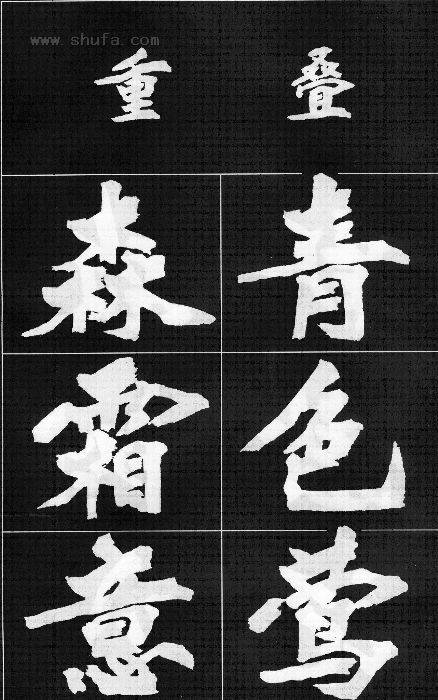 www.shufa.com
叠重
青森
色霜
莺意